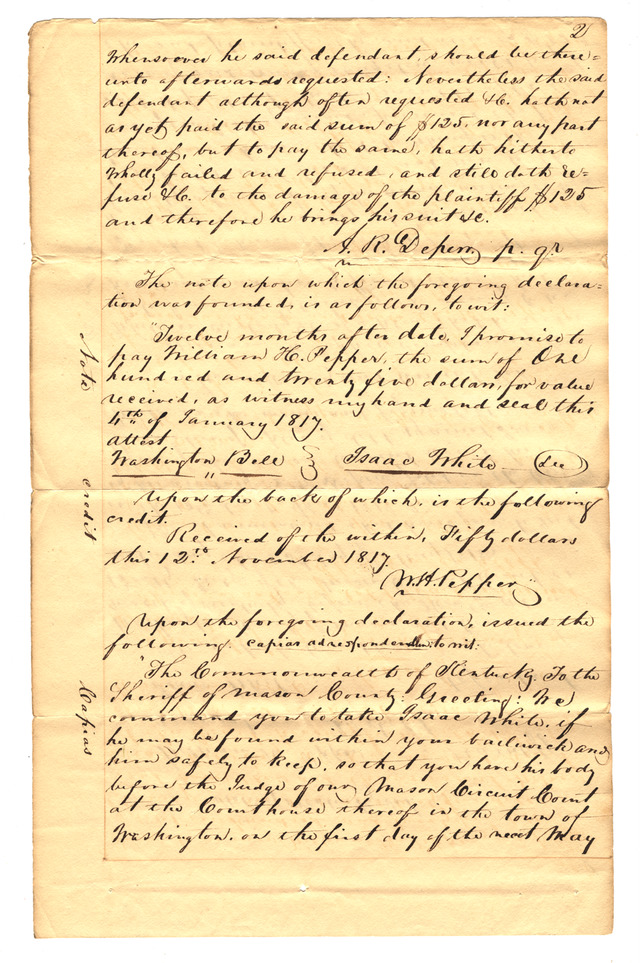 2
Whensoever he said defendant, should be there=
unto afterwards requested: Nevertheless the said
defendant although often requested &C. hath not
as yet paid the said sum of $125, nor any part
thereof, but to pay the same, hath hitherto
Wholly failed and refused, and still doth re=
fuse &C. to the damage of the plaintiff $125
and therefore he brings his suit &c.
A. R. Depew p. q.
The note upon which the foregoing declara=
tion was founded, is as follows, to wit:
"Twelve months after date, I promise to
pay William H. Pepper, the sum of One
hundred and twenty five dollars, for value
received, as witness my hand and seal this
4th of January 1817.
attest
Washington Bell Isaac White
Upon the back of which, is the following
credit.
Received of the within, Fifty dollars
this 12th November 1817.
W.H. Pepper"
Upon the foregoing declaration, issued the
following capias ad respondendum to wit:
"The Commonwealth of Kentucky, To the
Sheriff of Mason County: Greeting: We
command you to take Isaac White, if
he may be found within your bailiwick and
him safely to keep, so that you have his body
before the Judge of our Mason Circuit Court
at the Courthouse thereof in the town of
Washington, on the first day of the next May
Note
credit
Capias